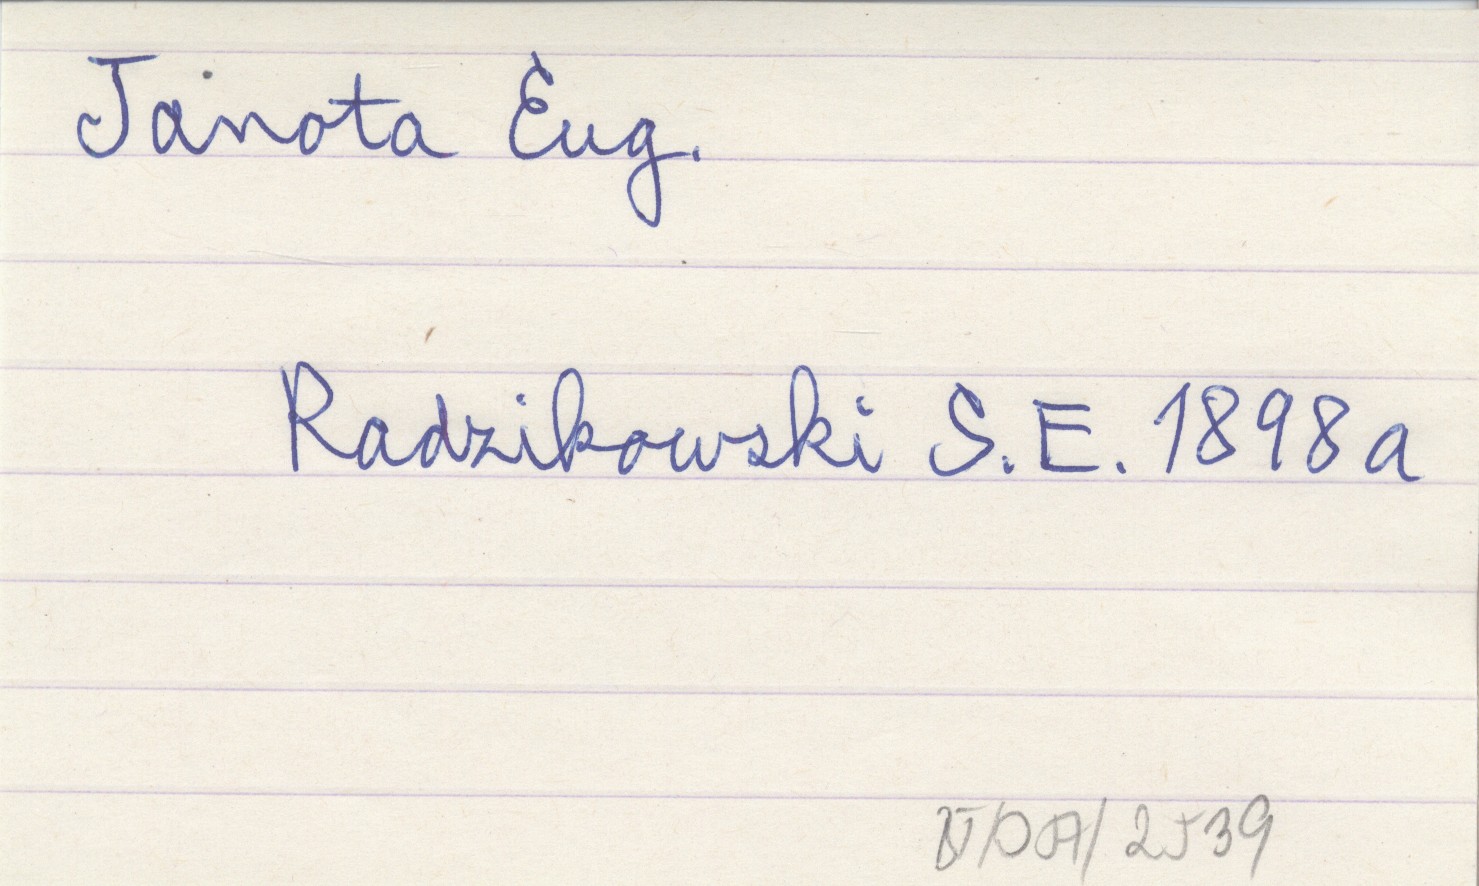 Janota Eug.
Radzikowski S.E. 1898a
2539